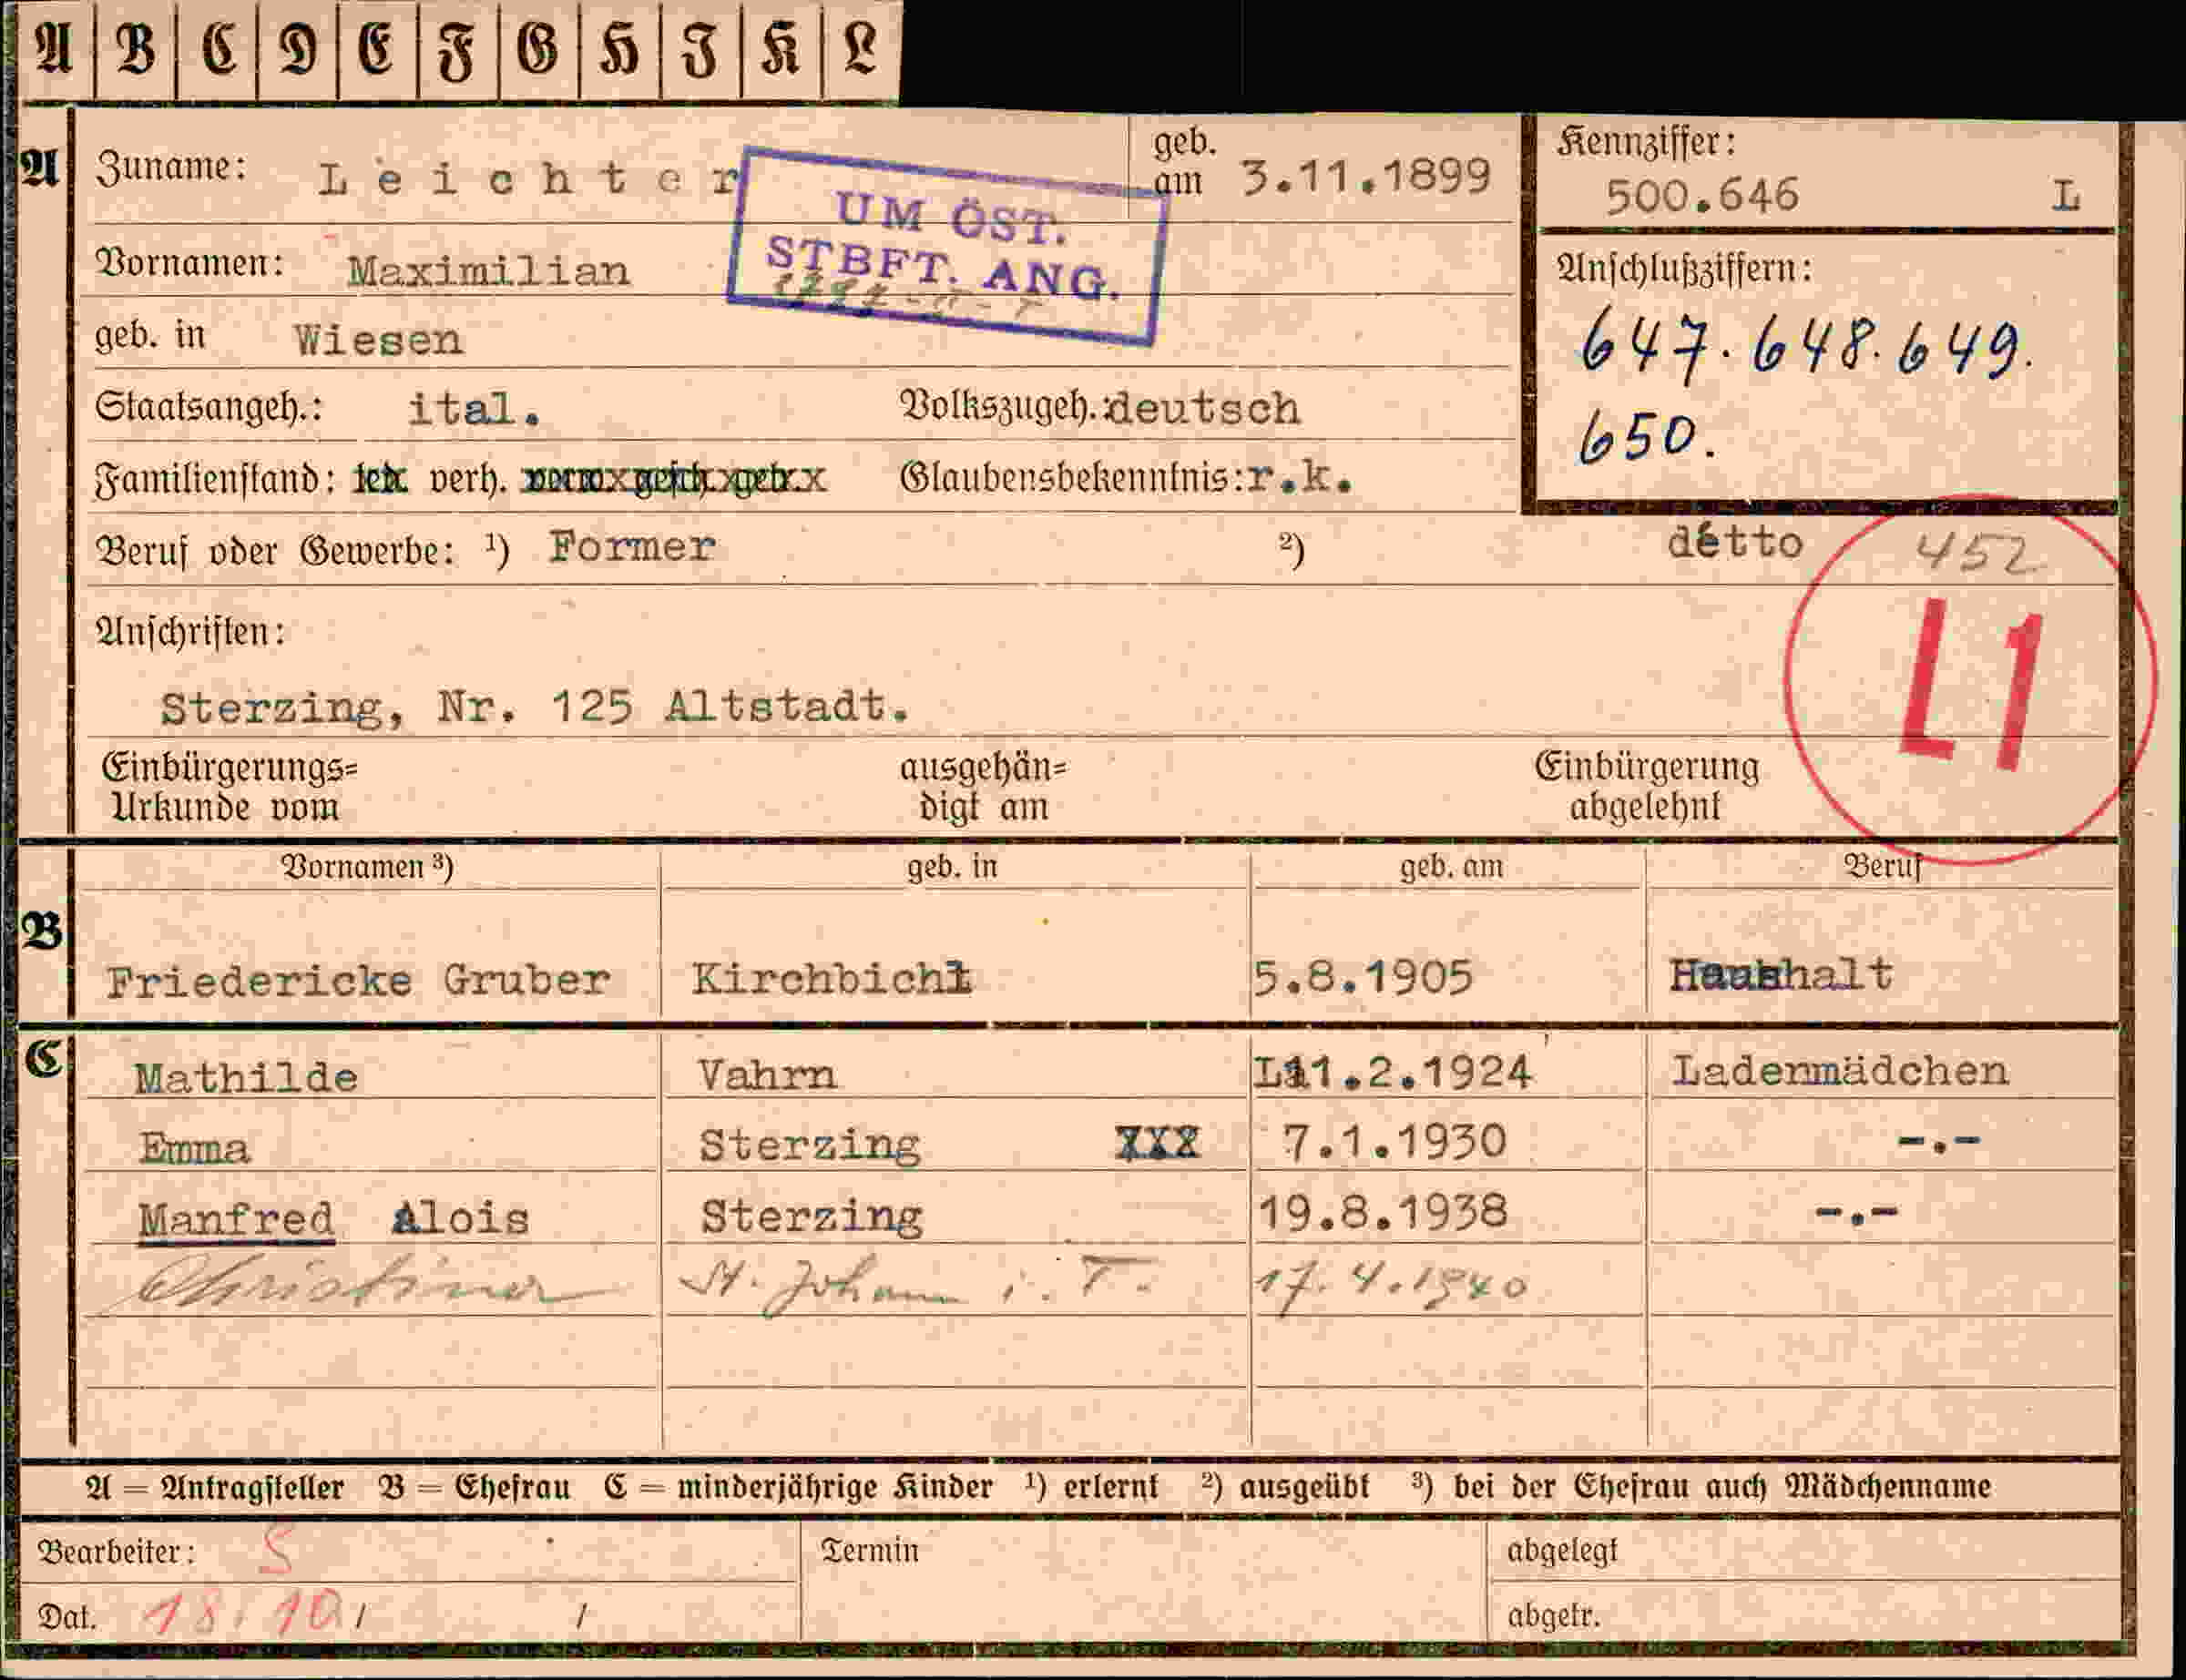 A B C D E F G H I K L
A Zuname: Leichter geb. am 3.11.1899 Kennziffer:
500.646 L
UM ÖST.
STBFT. ANG.
Vornamen: Maximilian Anschlußziffern:
geb. in Wiesen 647. 648. 649.
Staatsangeh.: ital. Volkszugeh.: deutsch 650.
Familienstand: verh. Glaubensbekenntnis: r.k.
Beruf oder Gewerbe: ¹) Former ²) detto 452
L1
Anschriften:
Sterzing, Nr. 125 Altstadt.
Einbürgerungs= ausgehän= Einbürgerung
Urkunde vom digt am abgelehnt
Vornamen ³) geb. in geb. am Beruf
B Friedericke Gruber Kirchbichl 5.8.1905 Haushalt
C Mathilde Vahrn 11.2.1924 Ladenmädchen
Emma Sterzing 7.1.1930 -.-
Manfred Alois Sterzing 19.8.1938 -.-
Christina St. Johann i. T. 17.4.1940
A = Antragsteller B = Ehefrau C = minderjährige Kinder ¹) erlernt ²) ausgeübt ³) bei der Ehefrau auch Mädchenname
Bearbeiter: S Termin abgelegt
Dat. 18.10 / / abgetr.